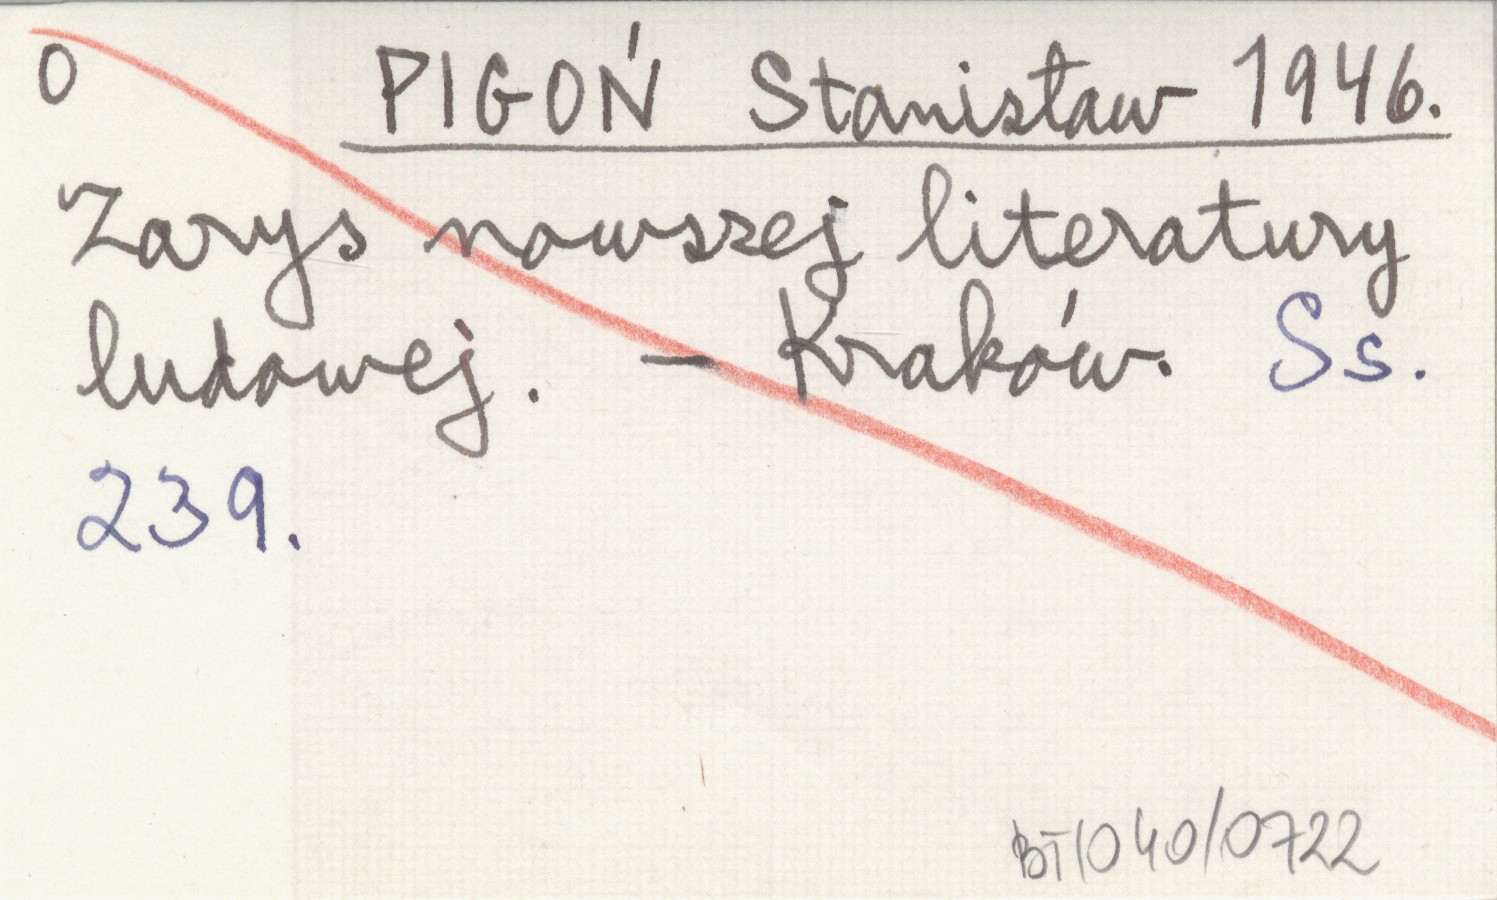 O PIGOŃ Stanisław 1946.
Zarys nowszej literatury
ludowej. – Kraków. Ss.
239.
BT/040/0722